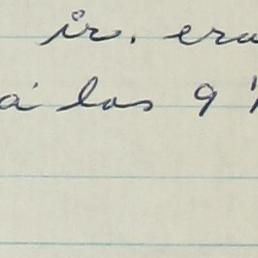 ir. era
á las 9